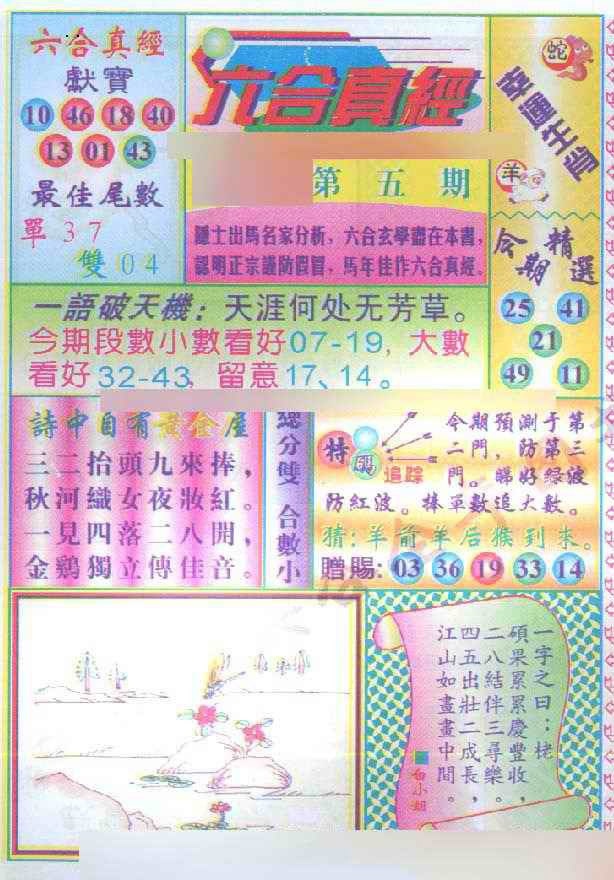 六合真經
獻寶
10 46 18 40
13 01 43
最佳尾數
單37
雙04
六合真經
第五期
隱士出馬名家分析，六合玄學盡在本書，
認明正宗謹防假冒，馬年佳作六合真經。
蛇
幸運生肖
羊
今期精選
25 41
21
49 11
一語破天機：天涯何处无芳草。
今期段數小數看好07-19，大數
看好32-43，留意17、14。
詩中自有黃金屋
三二抬頭九來捧，
秋河織女夜妝紅。
一見四落二八開，
金鷄獨立傳佳音。
總分雙 合數小
特碼
追踪
今期預測于第
二門，防第三
門。睇好绿波
防紅波。捧單數追大數。
猜：羊前羊后猴到来。
贈賜：03 36 19 33 14
一字之曰：栳
碩果累累慶豐收，
二八結伴三尋樂。
四五出壯二成長，
江山如畫畫中間。
白小姐